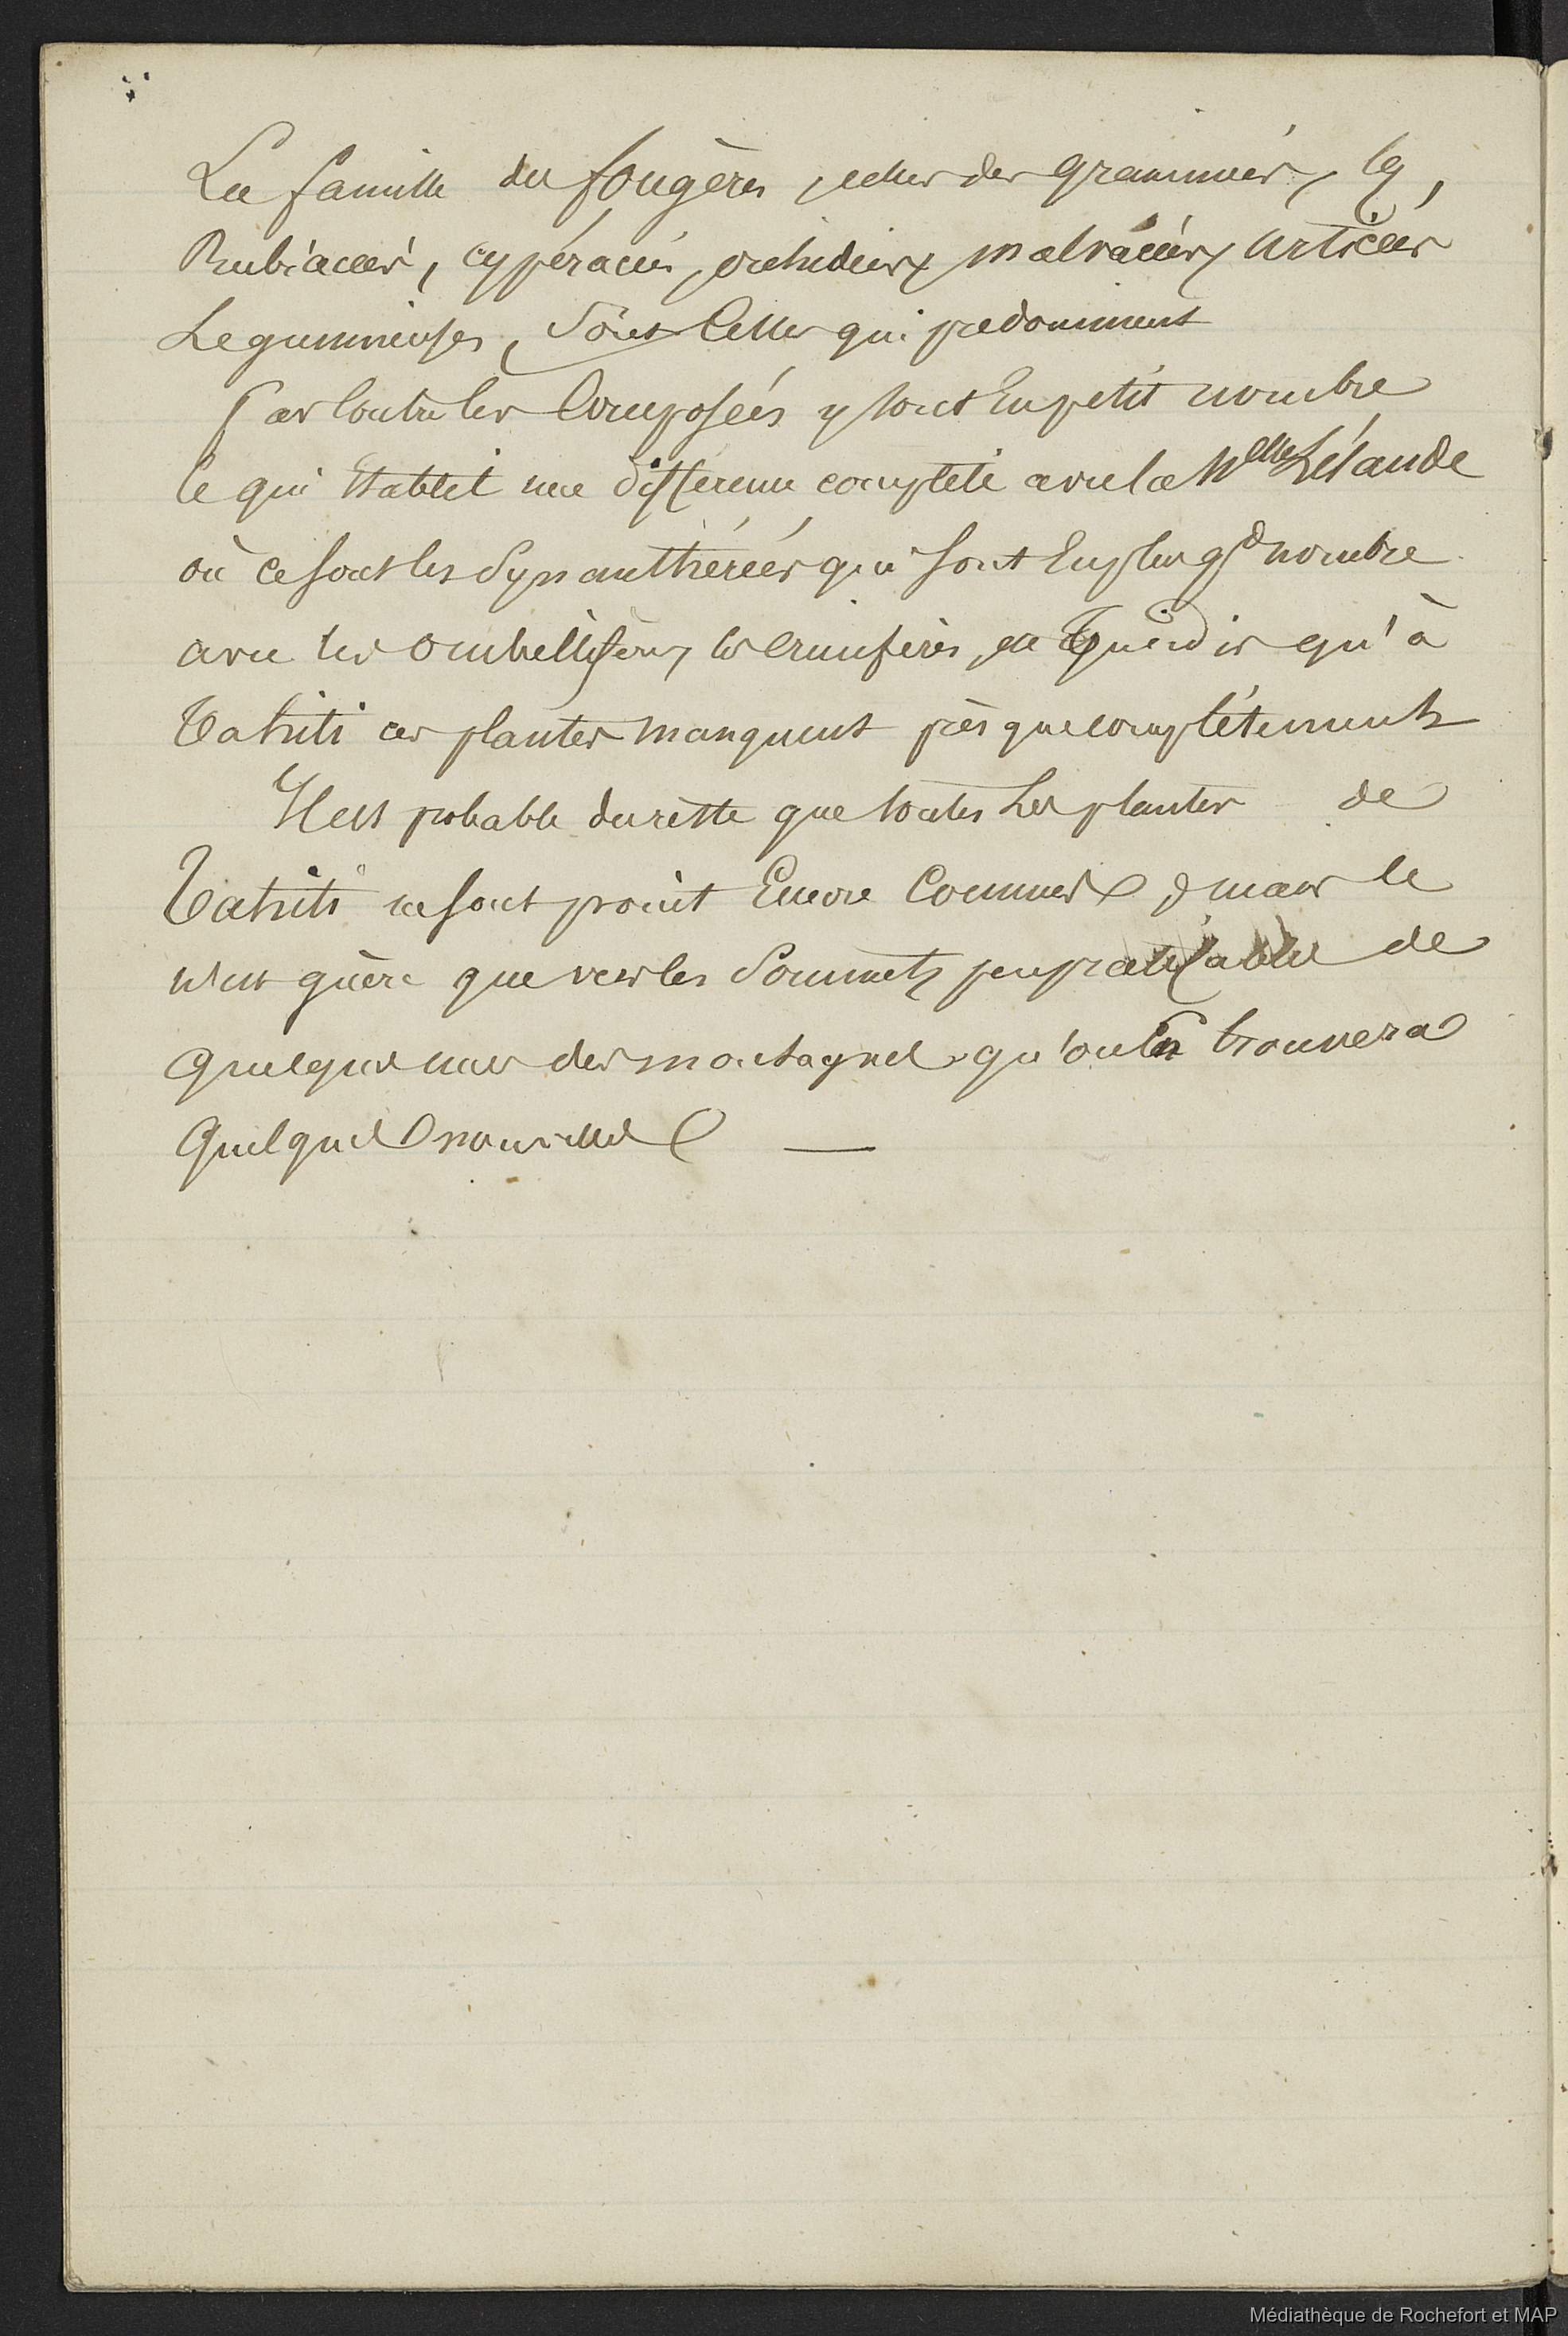 La famille des fougères, celles des graminées, les,
Rubiacées, cypéracées, orchidées, malvacées, urticées
Legumineuses, sont celles qui predominent
Par contre les Composées y sont En petit nombre
Ce qui Etablit une différence complète avec la Nelle Zélande
où ce sont les Synanthérées qui sont En plus gd nombre
avec les ombellifères, les crucifères, tandis qu'à
Tahiti ces plantes manquent presque complétement
Il est probable du reste que toutes Les plantes de
Tahiti ne sont point Encore Connues, mais ce
n'est guère que vers les Sommets peu praticables de
quelques unes des montagnes qu'on En trouvera
Quelques nouvelles —
Médiathèque de Rochefort et MAP